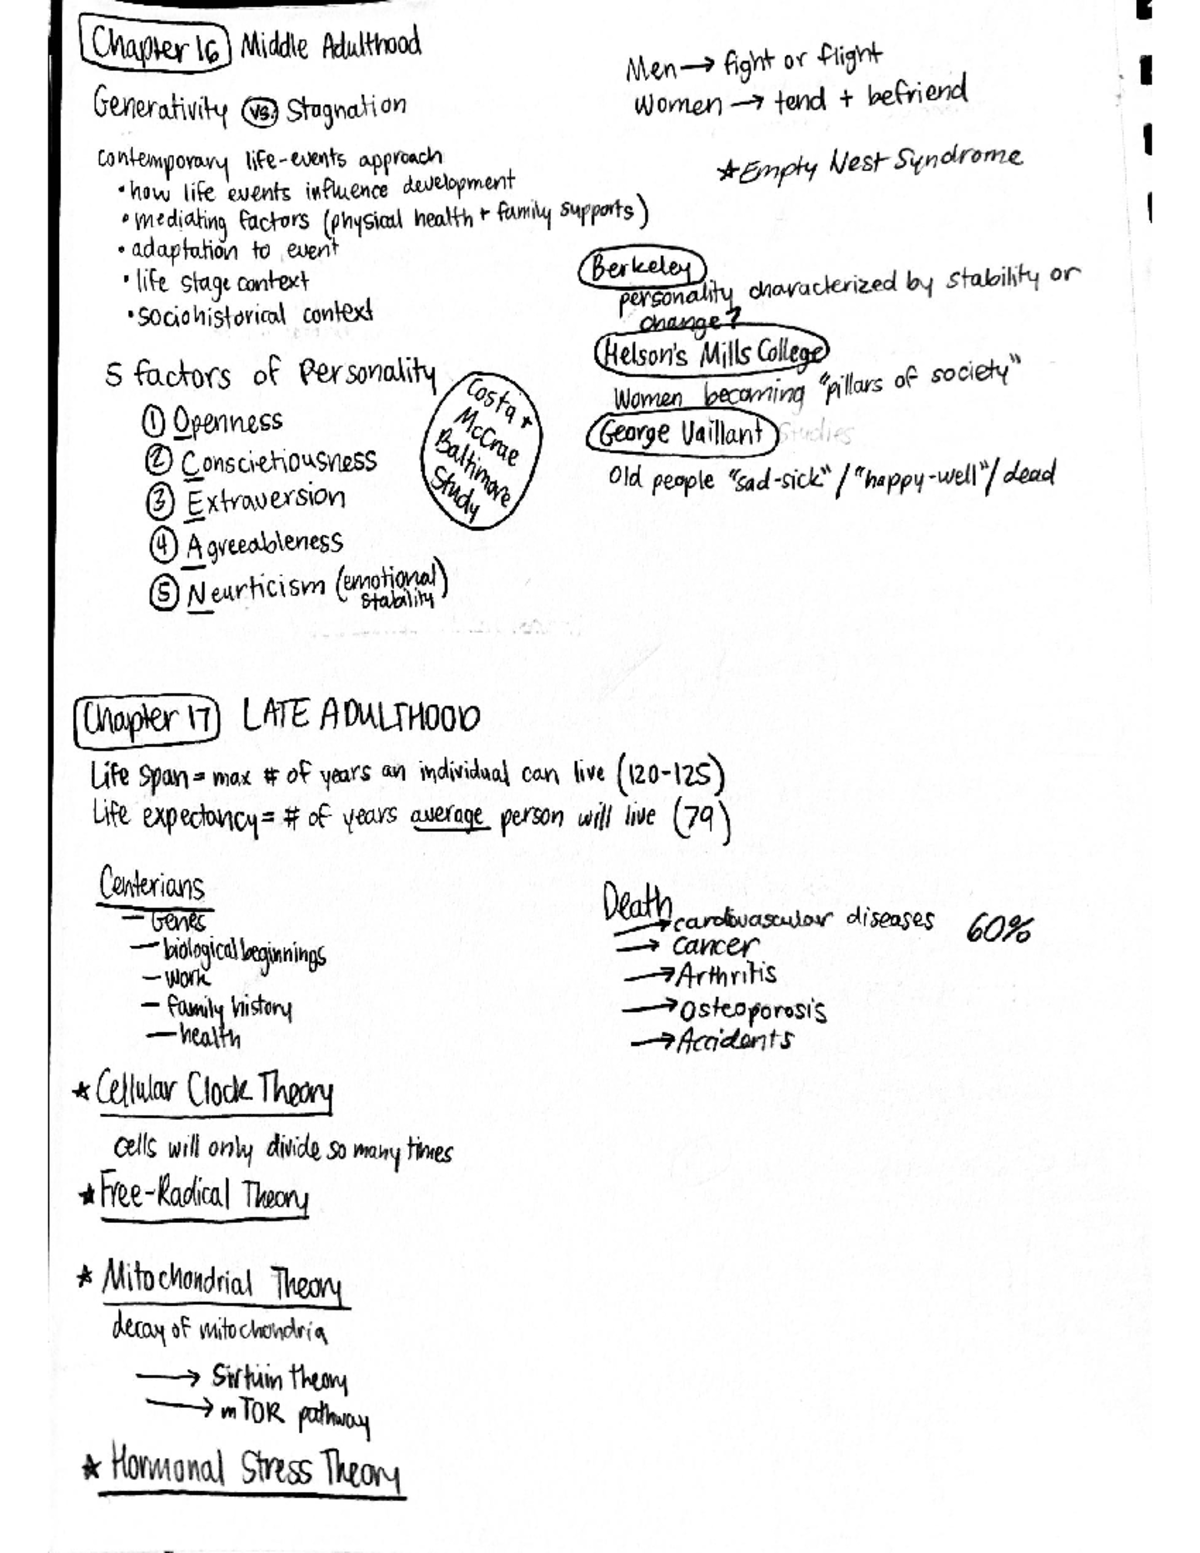 Chapter 16 Middle Adulthood
Generativity vs. Stagnation
contemporary life-events approach
• how life events influence development
• mediating factors (physical health + family supports)
• adaptation to event
• life stage context
• sociohistorical context
5 factors of Personality
① Openness
② Conscietiousness
③ Extraversion
④ Agreeableness
⑤ Neurticism (emotional stability)
Costa +
McCrae
Baltimore
Study
Men → fight or flight
Women → tend + befriend
★Empty Nest Syndrome
Berkeley
personality characterized by stability or
change?
Helson's Mills College
Women becoming "pillars of society"
George Vaillant Studies
Old people "sad-sick" / "happy-well" / dead
Chapter 17 LATE ADULTHOOD
Life span = max # of years an individual can live (120-125)
Life expectancy = # of years average person will live (79)
Centerians
— Genes
— biological beginnings
— work
— family history
— health
Death
→ cardiovascular diseases 60%
→ cancer
→ Arthritis
→ Osteoporosis
→ Accidents
★ Cellular Clock Theory
cells will only divide so many times
★ Free-Radical Theory
★ Mitochondrial Theory
decay of mitochondria
→ Sirtuin theory
→ mTOR pathway
★ Hormonal Stress Theory